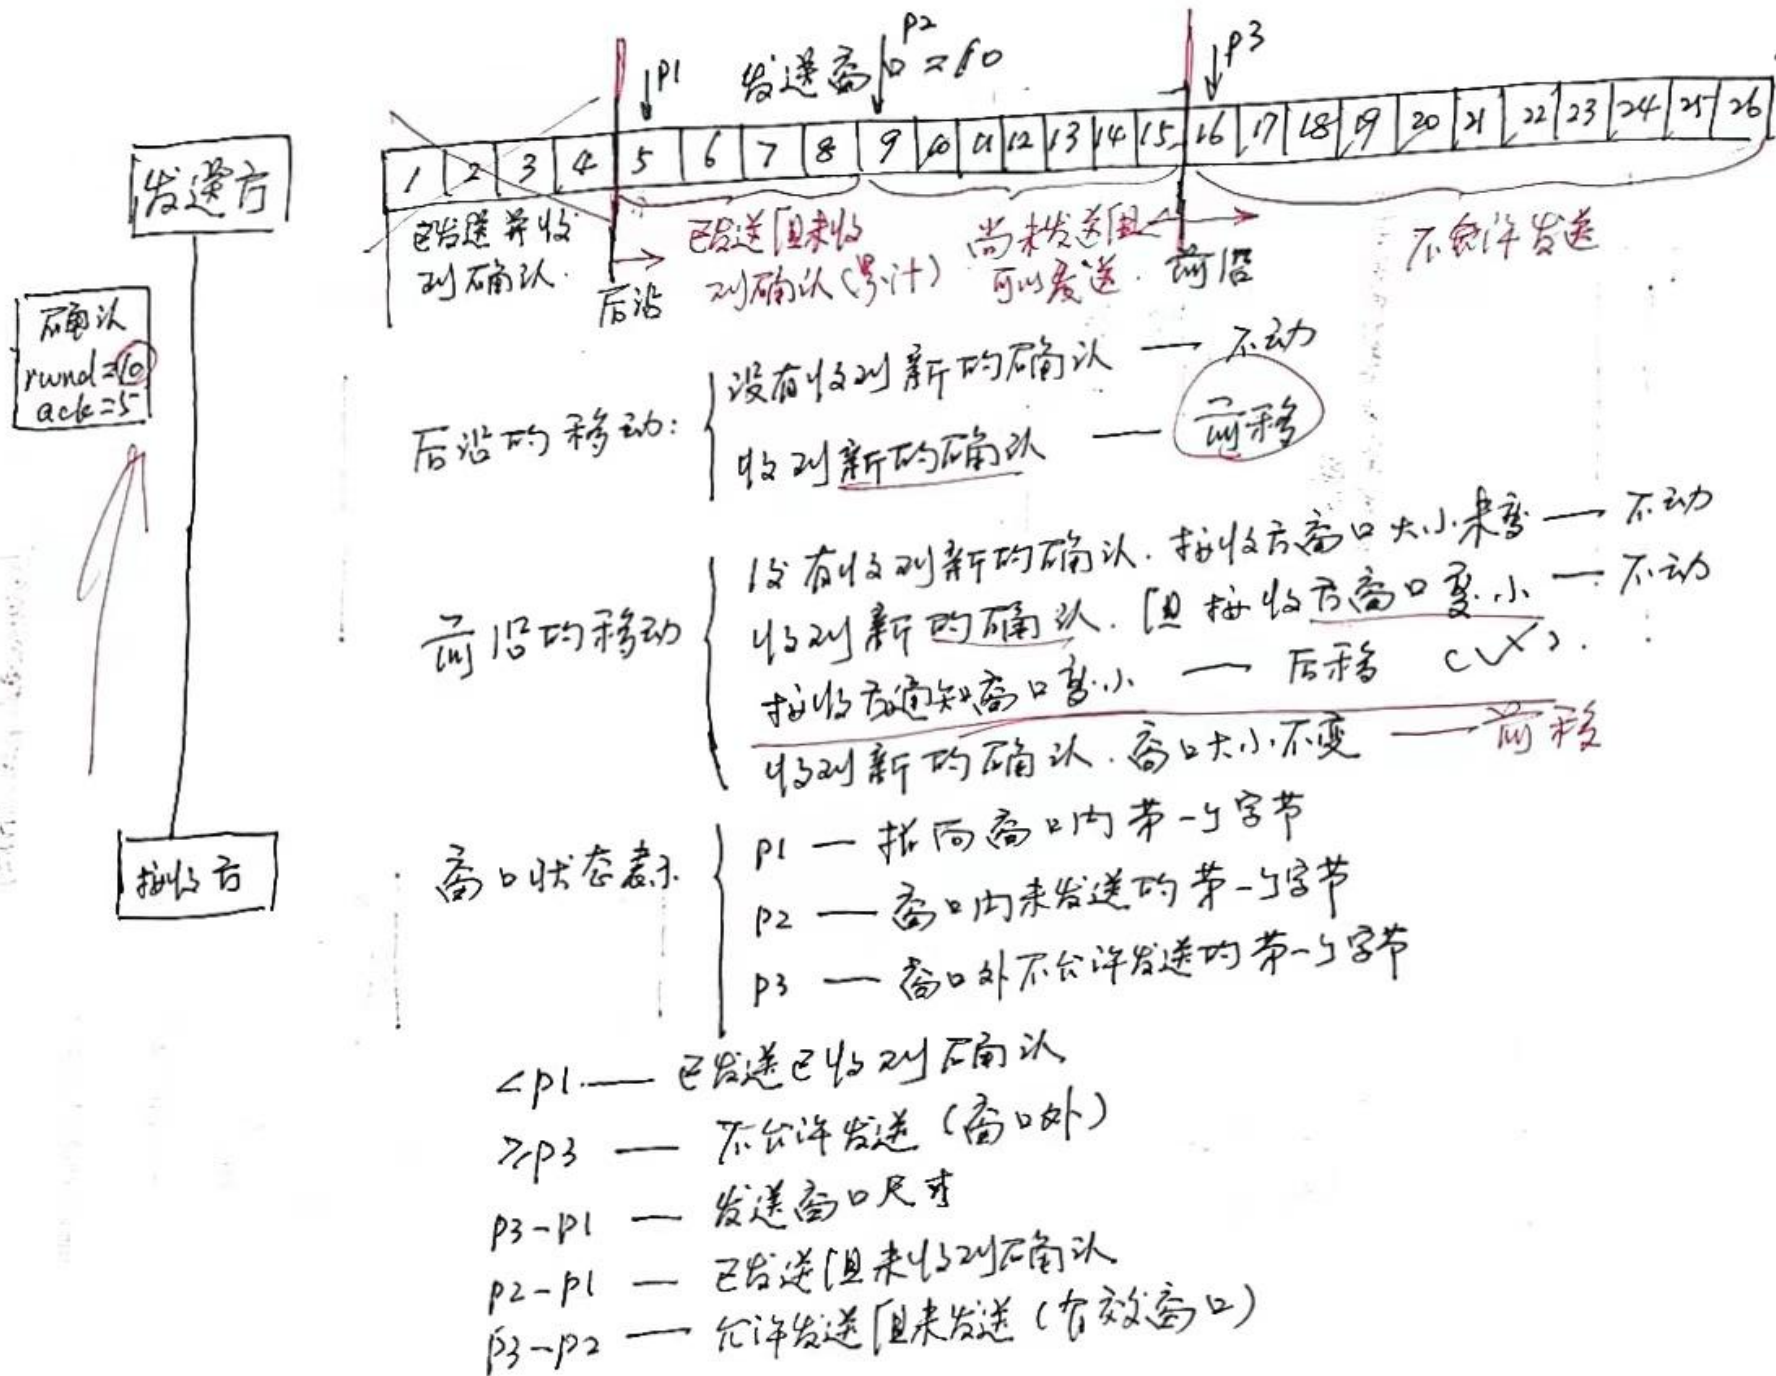 p1
p2
p3
发送窗口=10
发送方
1 2 3 4 5 6 7 8 9 10 11 12 13 14 15 16 17 18 19 20 21 22 23 24 25 26
已发送并收
到确认.
后沿
已发送但未收
到确认(累计)
尚未发送但
可以发送.
前沿
不允许发送
确认
rwnd=10
ack=5
后沿的移动:
没有收到新的确认 — 不动
收到新的确认 — 前移
前沿的移动
没有收到新的确认.接收方窗口大小未变 — 不动
收到新的确认.但接收方窗口变小 — 不动
接收方通知窗口变小 — 后移 (✓×).
收到新的确认.窗口大小不变 — 前移
接收方
窗口状态表示
p1 — 指向窗口内第一个字节
p2 — 窗口内未发送的第一个字节
p3 — 窗口外不允许发送的第一个字节
<p1 — 已发送已收到确认
≥p3 — 不允许发送(窗口外)
p3-p1 — 发送窗口尺寸
p2-p1 — 已发送但未收到确认
p3-p2 — 允许发送但未发送(有效窗口)